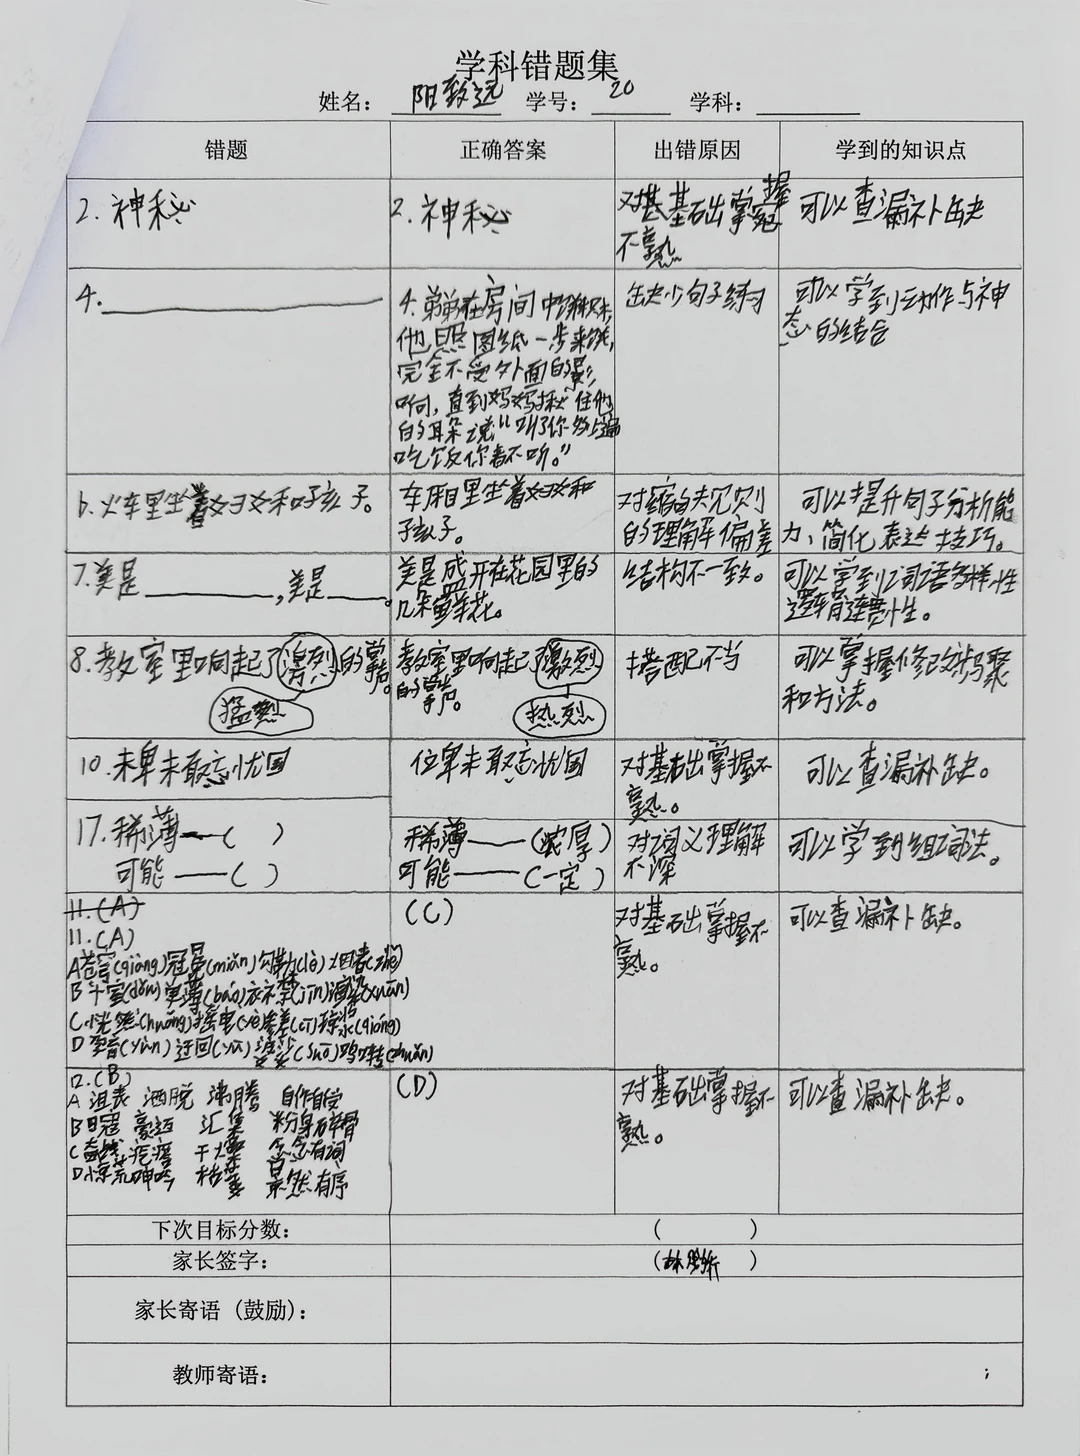 学科错题集
姓名： 阳致远 学号： 20 学科：
错题 正确答案 出错原因 学到的知识点
2. 神秘
2. 神秘
对基础掌握
不熟
可以查漏补缺
4.
4. 弟弟在房间中
他照图纸一步来
完全不受外面的影
响，直到妈妈揪住他
的耳朵说“叫了你多遍
吃饭你都不听。”
缺少句子练习
可以学到动作与神
态的结合
6. 火车里坐着妇女和孩子。
车厢里坐着妇女和
孩子。
对缩句规则
的理解偏差
可以提升句子分析能
力、简化表达技巧。
7. 美是 ，美是 。
美是盛开在花园里的
几朵鲜花。
结构不一致。
可以学到词语多样性
逻辑连贯性。
8. 教室里响起了激烈的掌声。
猛烈
教室里响起了激烈
的掌声。
热烈
搭配不当
可以掌握修改步骤
和方法。
10. 未卑未敢忘忧国
位卑未敢忘忧国
对基础掌握不
熟。
可以查漏补缺。
17. 稀薄——（ ）
可能——（ ）
稀薄——（浓厚）
可能——（一定）
对词义理解
不深
可以学到组词法。
11.(A)
11.(A)
A苍穹(qióng)冠冕(miǎn)勾勒(lè)
B斗室(dǒu)单薄(báo)衣襟(jīn)渲染(xuàn)
C恍然(huǎng)掣电(chè)参差(cī)琼浆(qióng)
D孕育(yùn)迂回(yū)婆娑(suō)鸣啭(zhuàn)
(C)
对基础掌握不
熟。
可以查漏补缺。
12.(B)
A 沮丧 洒脱 沸腾 自作自受
B 日冠 豪迈 汇集 粉身碎骨
C 疙瘩 干燥 念念有词
D 惊荒 呻吟 枯萎 景然有序
(D)
对基础掌握不
熟。
可以查漏补缺。
下次目标分数： （ ）
家长签字： （ ）
家长寄语（鼓励）：
教师寄语：